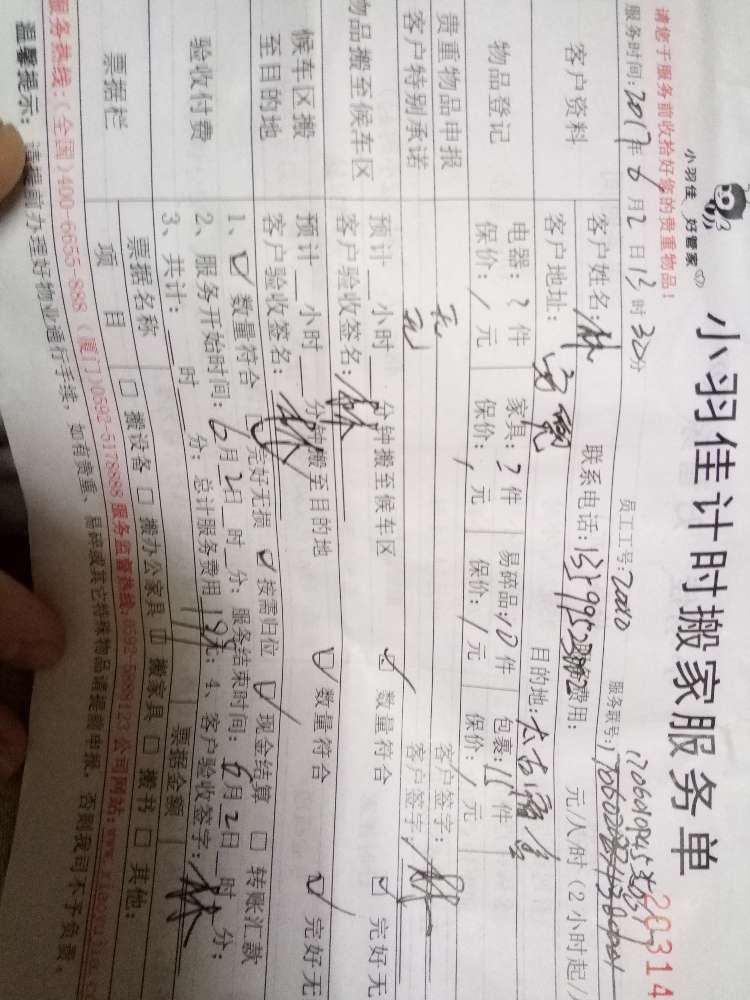 小羽佳 好管家
小羽佳计时搬家服务单
20314
请您于服务前收拾好您的贵重物品!
员工工号:2000
服务账号:
服务时间:2017年6月2日13时30分
客户资料
客户姓名:林
联系电话:
费用: 元/人时(2小时起/
客户地址:
目的地:太古
物品登记
电器:?件
家具:?件
易碎品:10件
包裹:15件
保价:/元
保价:/元
保价:/元
保价:/元
贵重物品申报
无
客户签字:
客户特别承诺
无
客户签字:
物品搬至候车区
预计__小时__分钟搬至候车区
☑ 数量符合
☑ 完好无
客户验收签名:
候车区搬
至目的地
预计__小时__分钟搬至目的地
☑ 数量符合
☑ 完好无
客户验收签名:
验收付费
1、☑ 数量符合 ☑ 完好无损 ☑ 按需归位 ☑ 现金结算 □ 转账汇款
2、服务开始时间:6月2日__时__分; 服务结束时间:6月2日__时__分;
3、共计:__时__分; 总计服务费用 元; 4、客户验收签字:
票据栏
票据名称
票据金额
项 目
□ 搬设备 □ 搬办公家具 ☑ 搬家具 □ 搬书 □ 其他:
服务热线:(全国)400-6655-888 (厦门)0592-5178888 服务监督热线:0592-5888123 公司网站:www.xiaoyujia.co
温馨提示: 请提前办理好物业通行手续, 如有贵重、易碎或其它特殊物品请提前申报。否则我司不予负责。